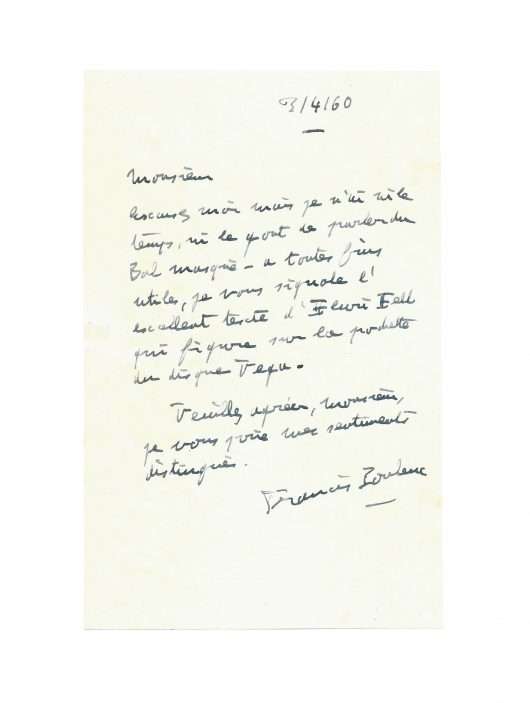 3/4/60
Monsieur
Excusez moi mais je n'ai ni le
temps, ni le goût de parler du
Bal masqué - a toutes fins
utiles, je vous signale l'
excellent texte d'Henri Hell
qui figure sur la pochette
du disque Vega.
Veuillez agréer, monsieur,
je vous prie mes sentiments
distingués.
Francis Poulenc